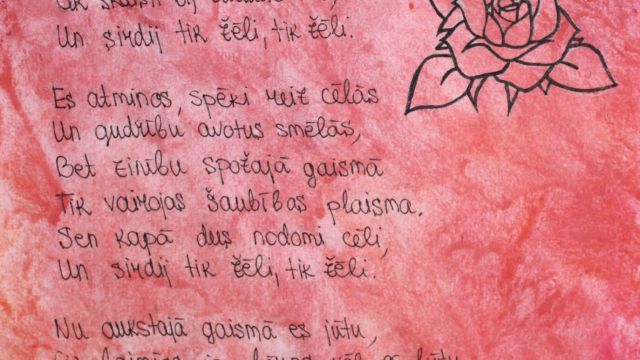 Un sirdij tik žēli, tik žēli.
Es atminos, spēki reiz cēlās
Un gudrību avotus smēlās,
Bet zinību spožajā gaismā
Tik vairojas šaubības plaisma.
Sen kapā dus nodomi cēli,
Un sirdij tik žēli, tik žēli.
Nu aukstajā gaismā es jūtu,